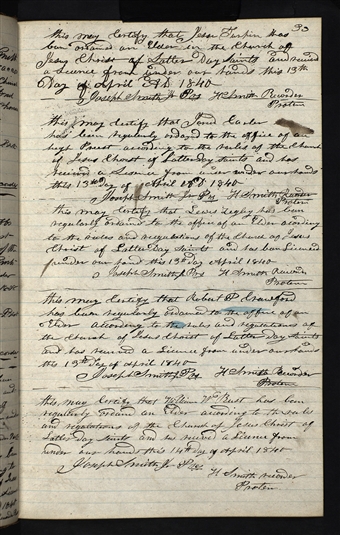 33
this may Certify that Jesse Turpin has
ben ordained an Elder in the Church of
Jesus Christ of Latter Day Saints and recived
a licence from under our hands this 13th
Day of April AD 1840
Joseph Smith Jr Pst H Smith Recorder
Protem
this may Certify that
has been regularly ordaned to the office of an
high Priest according to the rules of the Church
of Jesus Christ of Latterday Saints and has
received a Licence from under our hands
this 13th Day of April 1840
Joseph Smith Jr Pst H Smith
Protem
this may Certify that Lewis has ben
regularly ordained to the office of an Elder acording
to the rules and regulations of the Church of Jesus
Christ of Latter Day Saints and has ben Licenced
under our hand this 13th day April 1840
Joseph Smith Jr Pst H Smith Recorder
Protem
this may Certify that Robert P Crawford
has been regularly ordained to the office of an
Elder according to the rules and regulations of
the Church of Jesus Christ of Latter day Saints
and has received a Licence from under our hands
this 13th Day of April 1840
Joseph Smith Jr Pst H Smith Recorder
Protem
this may Certify that William Wm has been
regularly ordained an Elder according to the rules
and regulations of the Church of Jesus Christ of
Latter day Saints and has recived a Licence from
under our hands this 14th day of April 1840
Joseph Smith Jr Pst
H Smith recorder
Protem